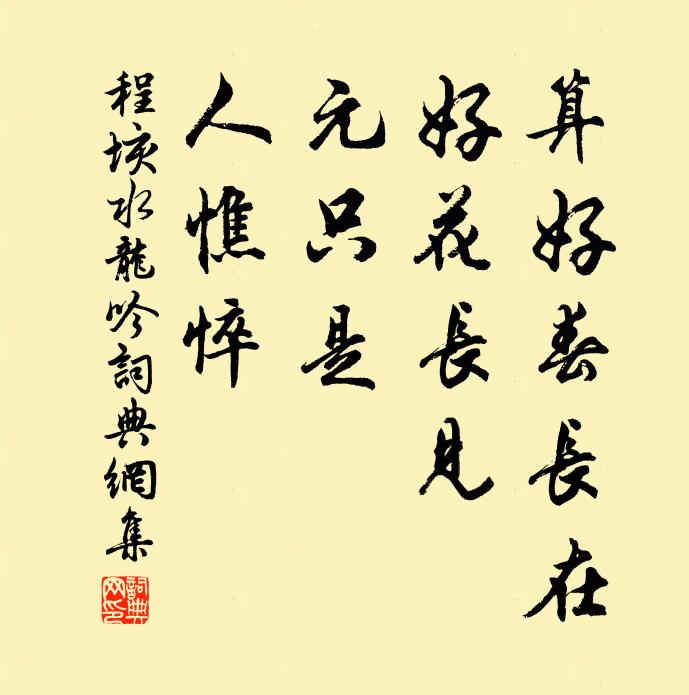 算好春長在
好花長見
元只是
人憔悴
程垓水龍吟詞典網集
詞典网印